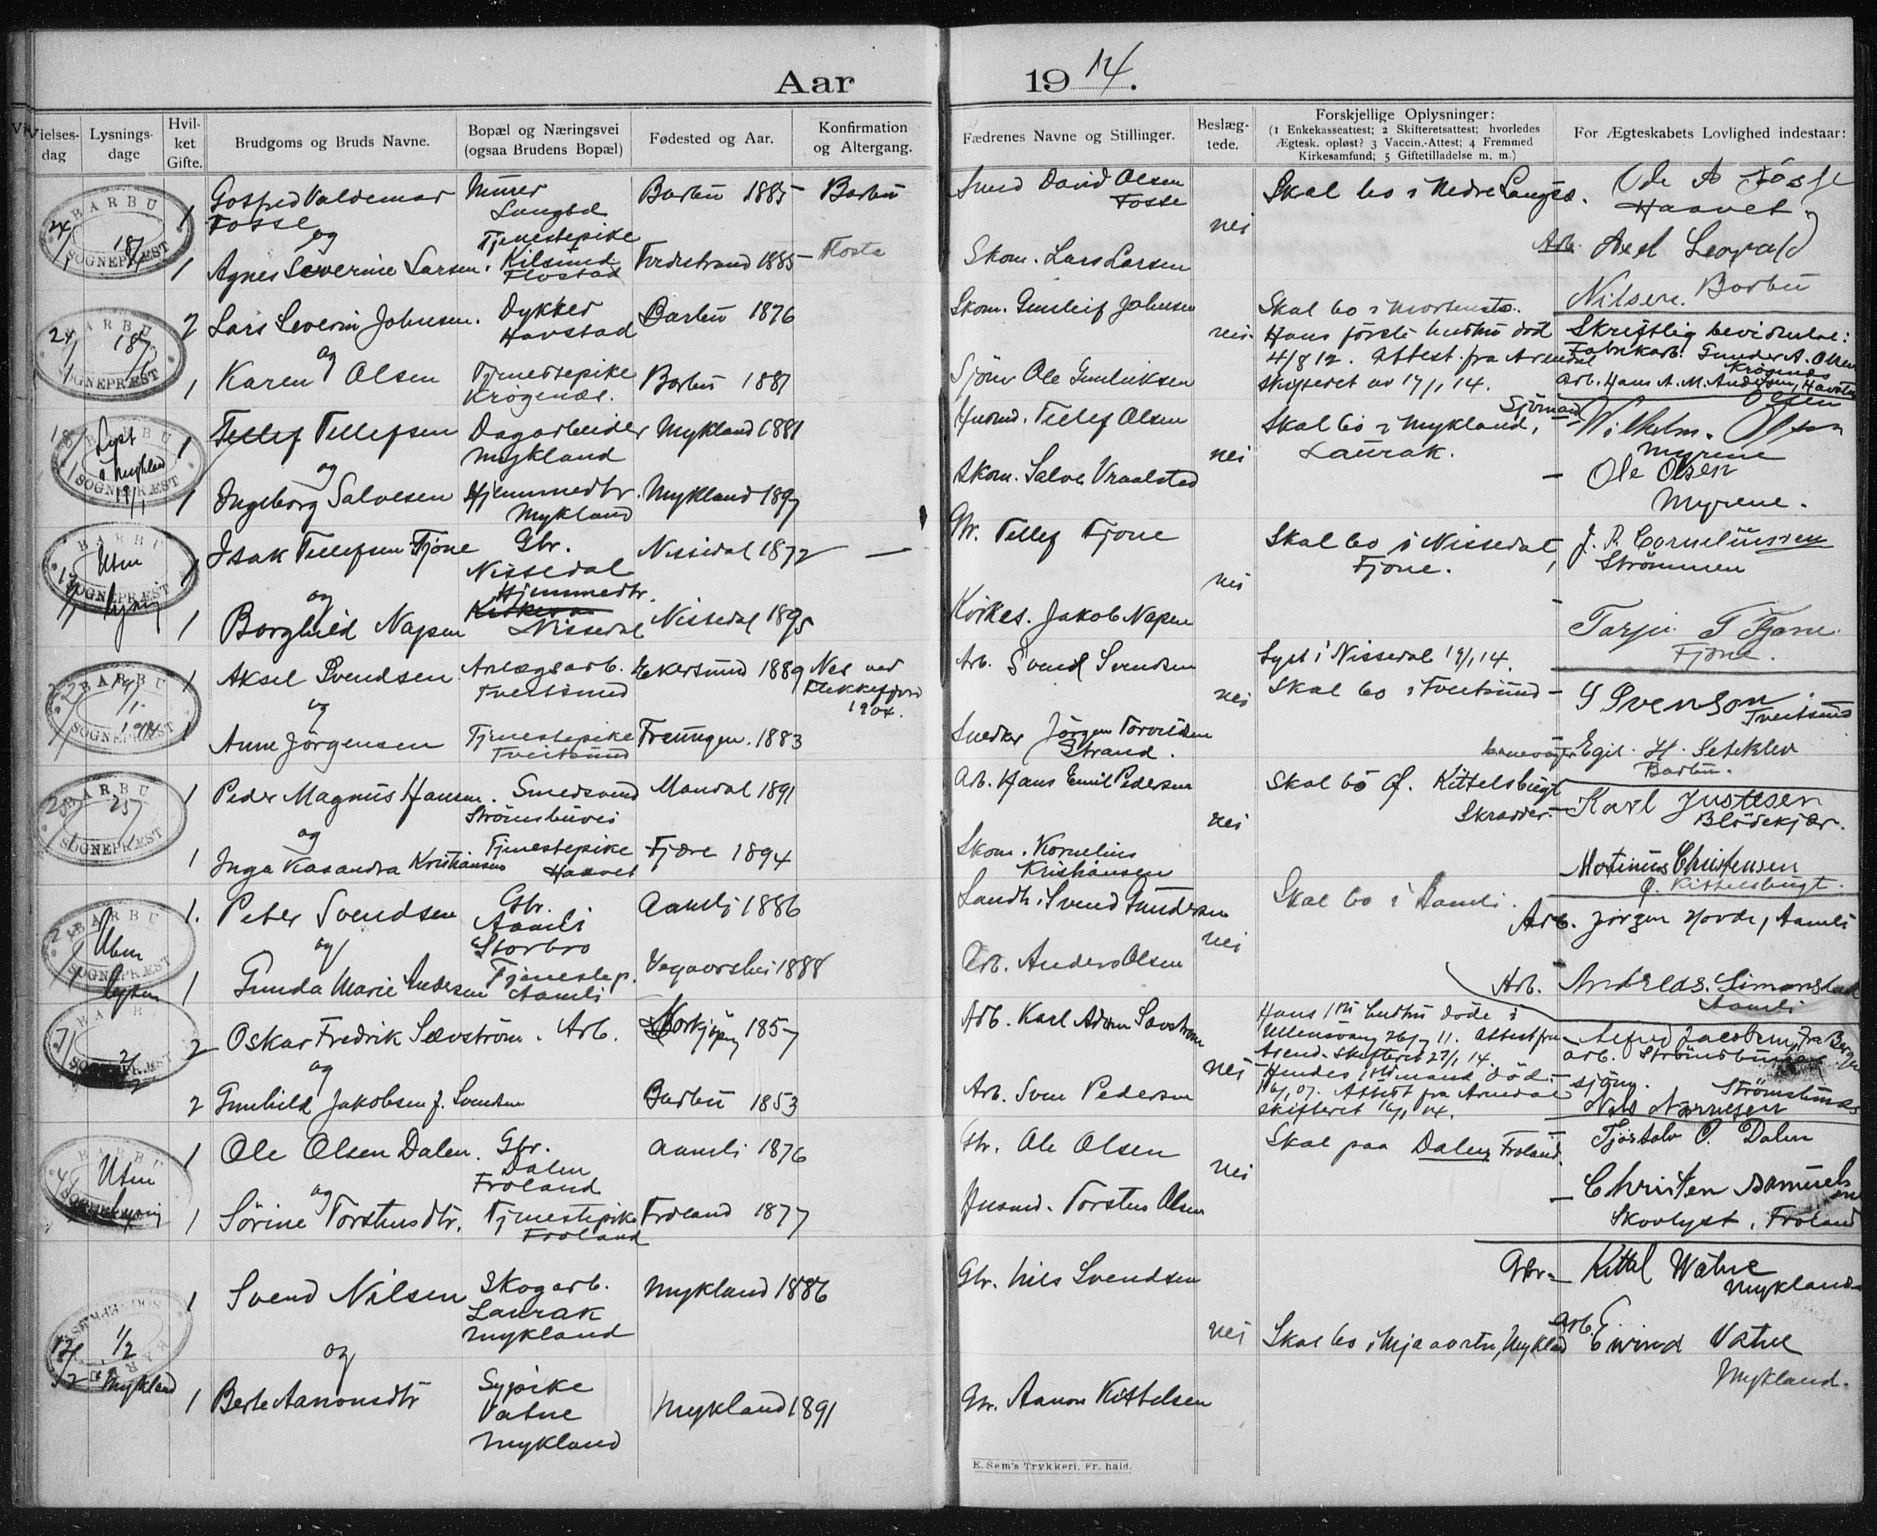 Aar
19 14.
Vielses-
dag
Lysnings-
dage
Hvil-
ket
Gifte.
Brudgoms og Bruds Navne.
Bopæl og Næringsvei
(ogsaa Brudens Bopæl)
Fødested og Aar.
Konfirmation
og Altergang.
Fædrenes Navne og Stillinger.
Beslæg-
tede.
Forskjellige Oplysninger:
(1 Enkekasseattest; 2 Skifteretsattest; hvorledes
Ægtesk. opløst? 3 Vaccin.-Attest; 4 Fremmed
Kirkesamfund; 5 Giftetilladelse m. m.)
For Ægteskabets Lovlighed indestaar:
BARBU
SOGNEPRÆST
24/1
18/1
1
Gotfred Valdemar
Fosse
og
Murer
Langsd
Barbu 1885
Barbu
Smed David Olsen
Fosse
nei
Skal bo i Nedre Langsæ.
Ole A Fosse
Haavet
1
Agnes Severine Larsen.
Tjenestepike
Kilsund
Flostad
1885
Flosta
Skom. Lars Larsen
Arb. Axel Leopold
Nilsen. Barbu
BARBU
SOGNEPRÆST
24/1
18/1
2
Lars Severin Johnsen.
og
Dykker
Havstad
Barbu 1876
Skom. Gunleif Johnsen
nei
Hans første hustru død
4/8 12. Attest fra Arendal
skifteret av 17/1 14.
Skriftlig bevidnelse:
Fabrikarb. Gunder A. Olsen
Krøgenes
Arb. Hans A. M. Andersen, Havstad
1
Karen Olsen
Tjenestepike
Krøgenæs.
Barbu 1881
BARBU
SOGNEPRÆST
18/1
Lyst
i Mykland
19/1
1
Tellef Tellefsen
og
Dagarbeider
Mykland
Mykland 1881
Husmd. Tellef Olsen
nei
Skal bo i Mykland,
Laurak.
Sjömand
Wilhelm Olsen
Myrene
1
Ingeborg Salvesen
Hjemmedtr.
Mykland
Mykland 1897
Skom. Salve Vraalstad
Ole Olsen
Myrene.
BARBU
SOGNEPRÆST
Uten
lysn
1
Isak Tellefsen Fjone
og
Gbr.
Nissedal
Nissedal 1872
Gbr. Tellef Fjone
nei
Skal bo i Nissedal,
Fjone.
J. P. Corneliussen
Strömmen
1
Borghild Napen
Hjemmedtr.
Nissedal
Nissedal 1895
Kirkes. Jakob Napen
Tarjei T Fjone
Fjone.
BARBU
SOGNEPRÆST
1914
1
Aksel Svendsen
og
Anlægsarb.
Tveitsund
Ekersund 1889
Nes ved
Flekkefjord
1904.
Arb. Svend Svendsen
nei
Lyst i Nissedal 19/1 14.
Skal bo i Tveitsund
S Svenson
Tveitsund
Anne Jörgensen
Tjenestepike
Tveitsund
1883
Snedker Jörgen Torvildsen
Strand.
Egil. H. Seteklev
Barbu.
BARBU
SOGNEPRÆST
25/1
1
Peder Magnus Hansen.
og
Smedsvend
Strømsbuvei
Mandal 1891
Arb. Hans Emil Pedersen
nei
Skal bo Ø. Kittelsbugt
Skrædder.
Karl Justesen
Blødekjær.
1
Inga Kasandra Kristiansen
Tjenestepike
Haavet
Fjære 1894
Skom. Kornelius
Kristiansen
Martinius Christensen
Ø. Kittelsbugt.
BARBU
SOGNEPRÆST
Uten
lysn
1.
Peter Svendsen
og
Gbr.
Aamli
Storbro
Aamli 1886
Landh. Svend Gundersen
nei
Skal bo i Aamli.
Arb. Jörgen Hovde, Aamli
1
Gunda Marie Andersen
Tjenestep.
Aamli
Vegaarshei 1888
Arb. Anders Olsen
Arb. Andreas Simonstad
Aamli
BARBU
SOGNEPRÆST
2
Oskar Fredrik Sævström.
og
Arb.
Norkjöping 1857
Arb. Karl Adam Sævström
nei
Hans 1ste hustru døde i
Ullensvang 26/7 11. Attest fra
Arend. skifteret 27/1 14.
Alfred Jacobsen, fra Bergen
arb. Strömsbu
2
Gunhild Jakobsen f. Svendsen
Barbu 1853
Arb. Sven Pedersen
Hendes 1ste mand død
Attest fra Arendal
skifteret
sjöm. Strömsbu
Nils
BARBU
SOGNEPRÆST
Uten
lysning
1
Ole Olsen Dalen.
og
Gbr.
Dalen
Froland
Aamli 1876
Gbr. Ole Olsen
nei
Skal paa Dalen, Froland.
Tjöstolv O. Dalen
1
Sörine Torstensdtr.
Tjenestepike
Froland
Froland 1877
Husmd. Torsten Olsen
Christen Samuelsen
Skovlyst, Froland
1/2
i Mykland
1
Svend Nilsen
og
Skogarb.
Laurak
Mykland
Mykland 1886
Gbr. Nils Svendsen
nei
Skal bo i Mjaavatn, Mykland
Gbr. Kittel Watne
Mykland
1
Berte Aanonsdtr
Sypike
Vatne
Mykland
Mykland 1891
Gbr. Aanon Kittelsen
Arb. Eivind Vatne
Mykland.
E. Sem's Trykkeri, Fr. hald.